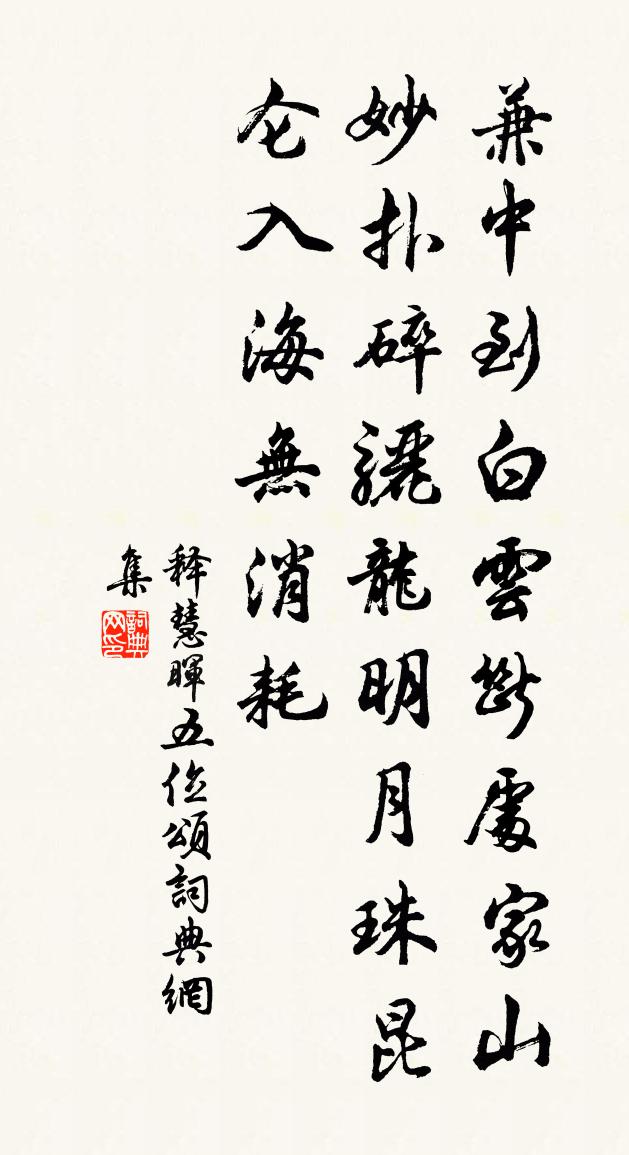 兼中到白雲斷處家山
妙扑碎驪龍明月珠昆
仑入海無消耗
释慧暉五位頌詞典網
集
詞典
网印